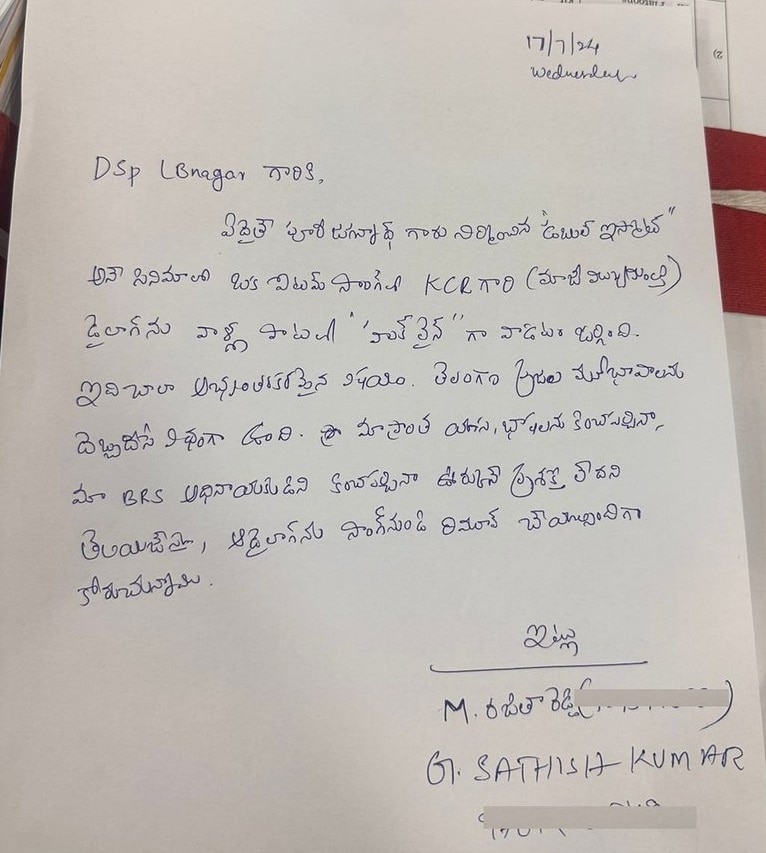 17/7/24
Wednesday
DSP LBnagar గారికి,
ఏదైతే పూరీ జగన్నాథ్ గారు నిర్మించిన "డబుల్ ఇస్మార్ట్"
అనే సినిమాలో ఒక ఐటమ్ సాంగ్‌లో KCR గారి (మాజీ ముఖ్యమంత్రి)
డైలాగ్‌ను వాళ్ళ పాటలో "హుక్ లైన్" గా వాడటం జర్గింది.
ఇది చాలా అభ్యంతరకరమైన విషయం. తెలంగాణ ప్రజల మనోభావాలను
దెబ్బతీసే విధంగా ఉంది. మా ప్రాంత యాస, భాషలను కించపర్చినా,
మా BRS అధినాయకుడిని కించపర్చినా ఊర్కునే ప్రసక్తే లేదని
తెలియజేస్తూ, ఆ డైలాగ్‌ను సాంగ్ నుండి రిమూవ్ చేయాల్సిందిగా
కోరుచున్నాము.
ఇట్లు
M. రజితా రెడ్డి (
G. SATHISH KUMAR